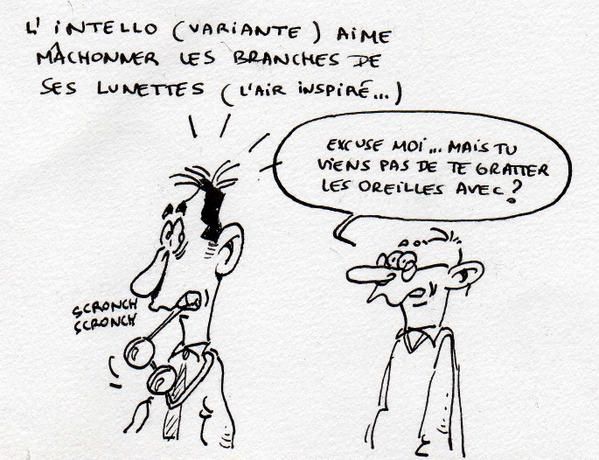 L'INTELLO (VARIANTE) AIME
MÂCHONNER LES BRANCHES DE
SES LUNETTES (L'AIR INSPIRÉ...)
EXCUSE MOI... MAIS TU
VIENS PAS DE TE GRATTER
LES OREILLES AVEC?
SCRONCH
SCRONCH